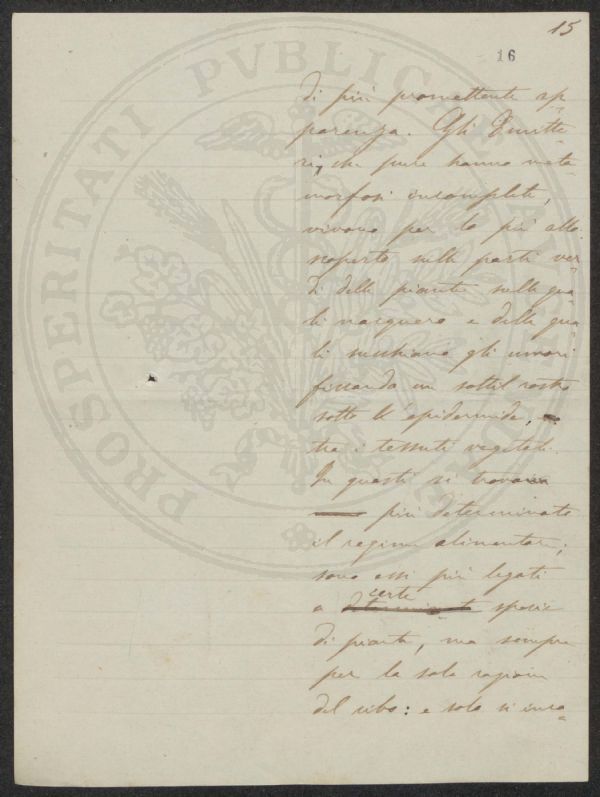 15
16
di più promettente ap-
parenza. Gli Emitte-
ri, che pure hanno meta-
morfosi incomplete,
vivono per lo più allo
scoperto sulle parti ver-
di delle piante sulle qua-
li nacquero e delle qua-
li succhiano gli umori
fissando un sottil rostro
sotto le epidermide,
tra i tessuti vegetali.
In questi si trova
più determinato
il regime alimentare;
sono essi più legati
a certe specie
di piante, ma sempre
per la sola ragione
del cibo: e solo si inco-
PROSPERITATI PVBLICAE